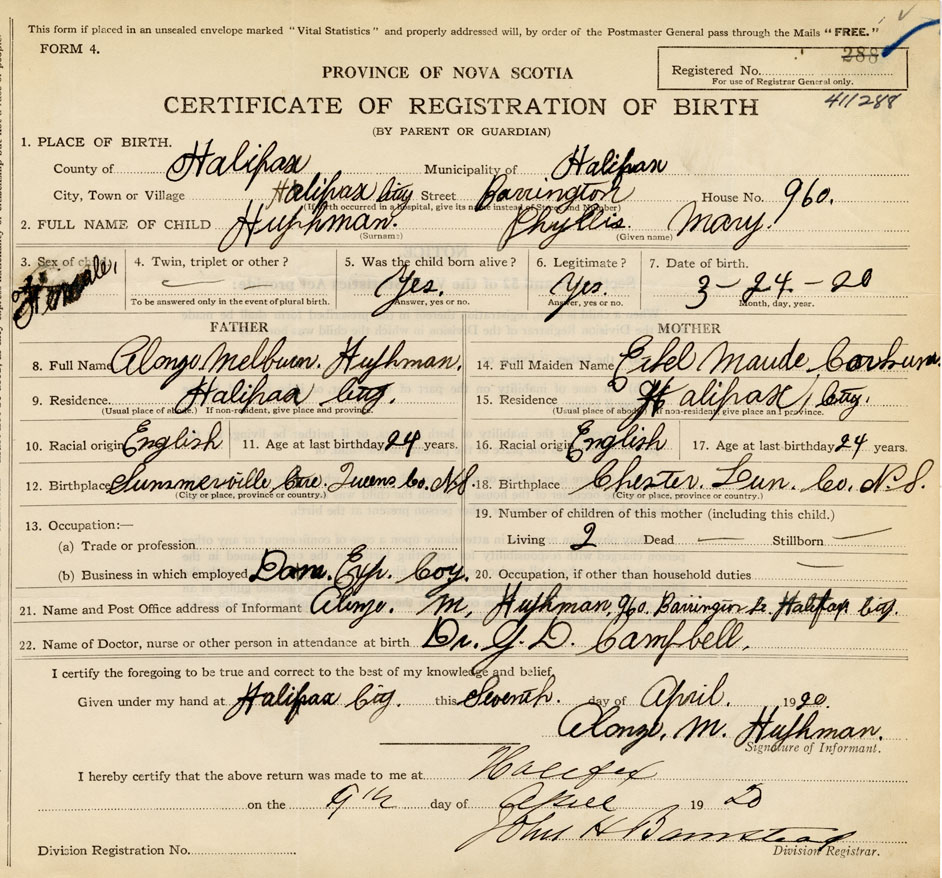 This form if placed in an unsealed envelope marked "Vital Statistics" and properly addressed will, by order of the Postmaster General pass through the Mails "FREE."
FORM 4.
288
Registered No.
For use of Registrar General only.
411288
PROVINCE OF NOVA SCOTIA
CERTIFICATE OF REGISTRATION OF BIRTH
(BY PARENT OR GUARDIAN)
1. PLACE OF BIRTH.
County of Halifax Municipality of Halifax
City, Town or Village Halifax City Street Barrington House No. 960.
(If birth occurred in a hospital, give its name instead of Street and Number)
2. FULL NAME OF CHILD Huphman. Phyllis. Mary.
(Surname) (Given name)
3. Sex of child Female. 4. Twin, triplet or other? 5. Was the child born alive? Yes. 6. Legitimate? Yes. 7. Date of birth. 3-24-20
To be answered only in the event of plural birth. Answer, yes or no. Answer, yes or no. Month, day, year.
FATHER MOTHER
8. Full Name Alonzo Melburn. Huphman. 14. Full Maiden Name Ethel Maude
9. Residence Halifax City. 15. Residence Halifax City.
(Usual place of abode.) If non-resident, give place and province. (Usual place of abode) If non-resident, give place and province.
10. Racial origin English 11. Age at last birthday 24 years. 16. Racial origin English 17. Age at last birthday 24 years.
12. Birthplace Summerville Queens Co. N.S. 18. Birthplace Chester. Lun. Co. N.S.
(City or place, province or country.) (City or place, province or country.)
13. Occupation:— 19. Number of children of this mother (including this child.)
(a) Trade or profession Living 2 Dead — Stillborn —
(b) Business in which employed Dom. Exp. Coy. 20. Occupation, if other than household duties —
21. Name and Post Office address of Informant Alonzo. M. Huphman, 960. Barrington St. Halifax City.
22. Name of Doctor, nurse or other person in attendance at birth Dr. G. D. Campbell.
I certify the foregoing to be true and correct to the best of my knowledge and belief.
Given under my hand at Halifax City. this Seventh. day of April. 1920.
Alonzo. M. Huphman.
Signature of Informant.
I hereby certify that the above return was made to me at Halifax
on the 9th day of April 1920
John H Barnstead
Division Registration No. Division Registrar.